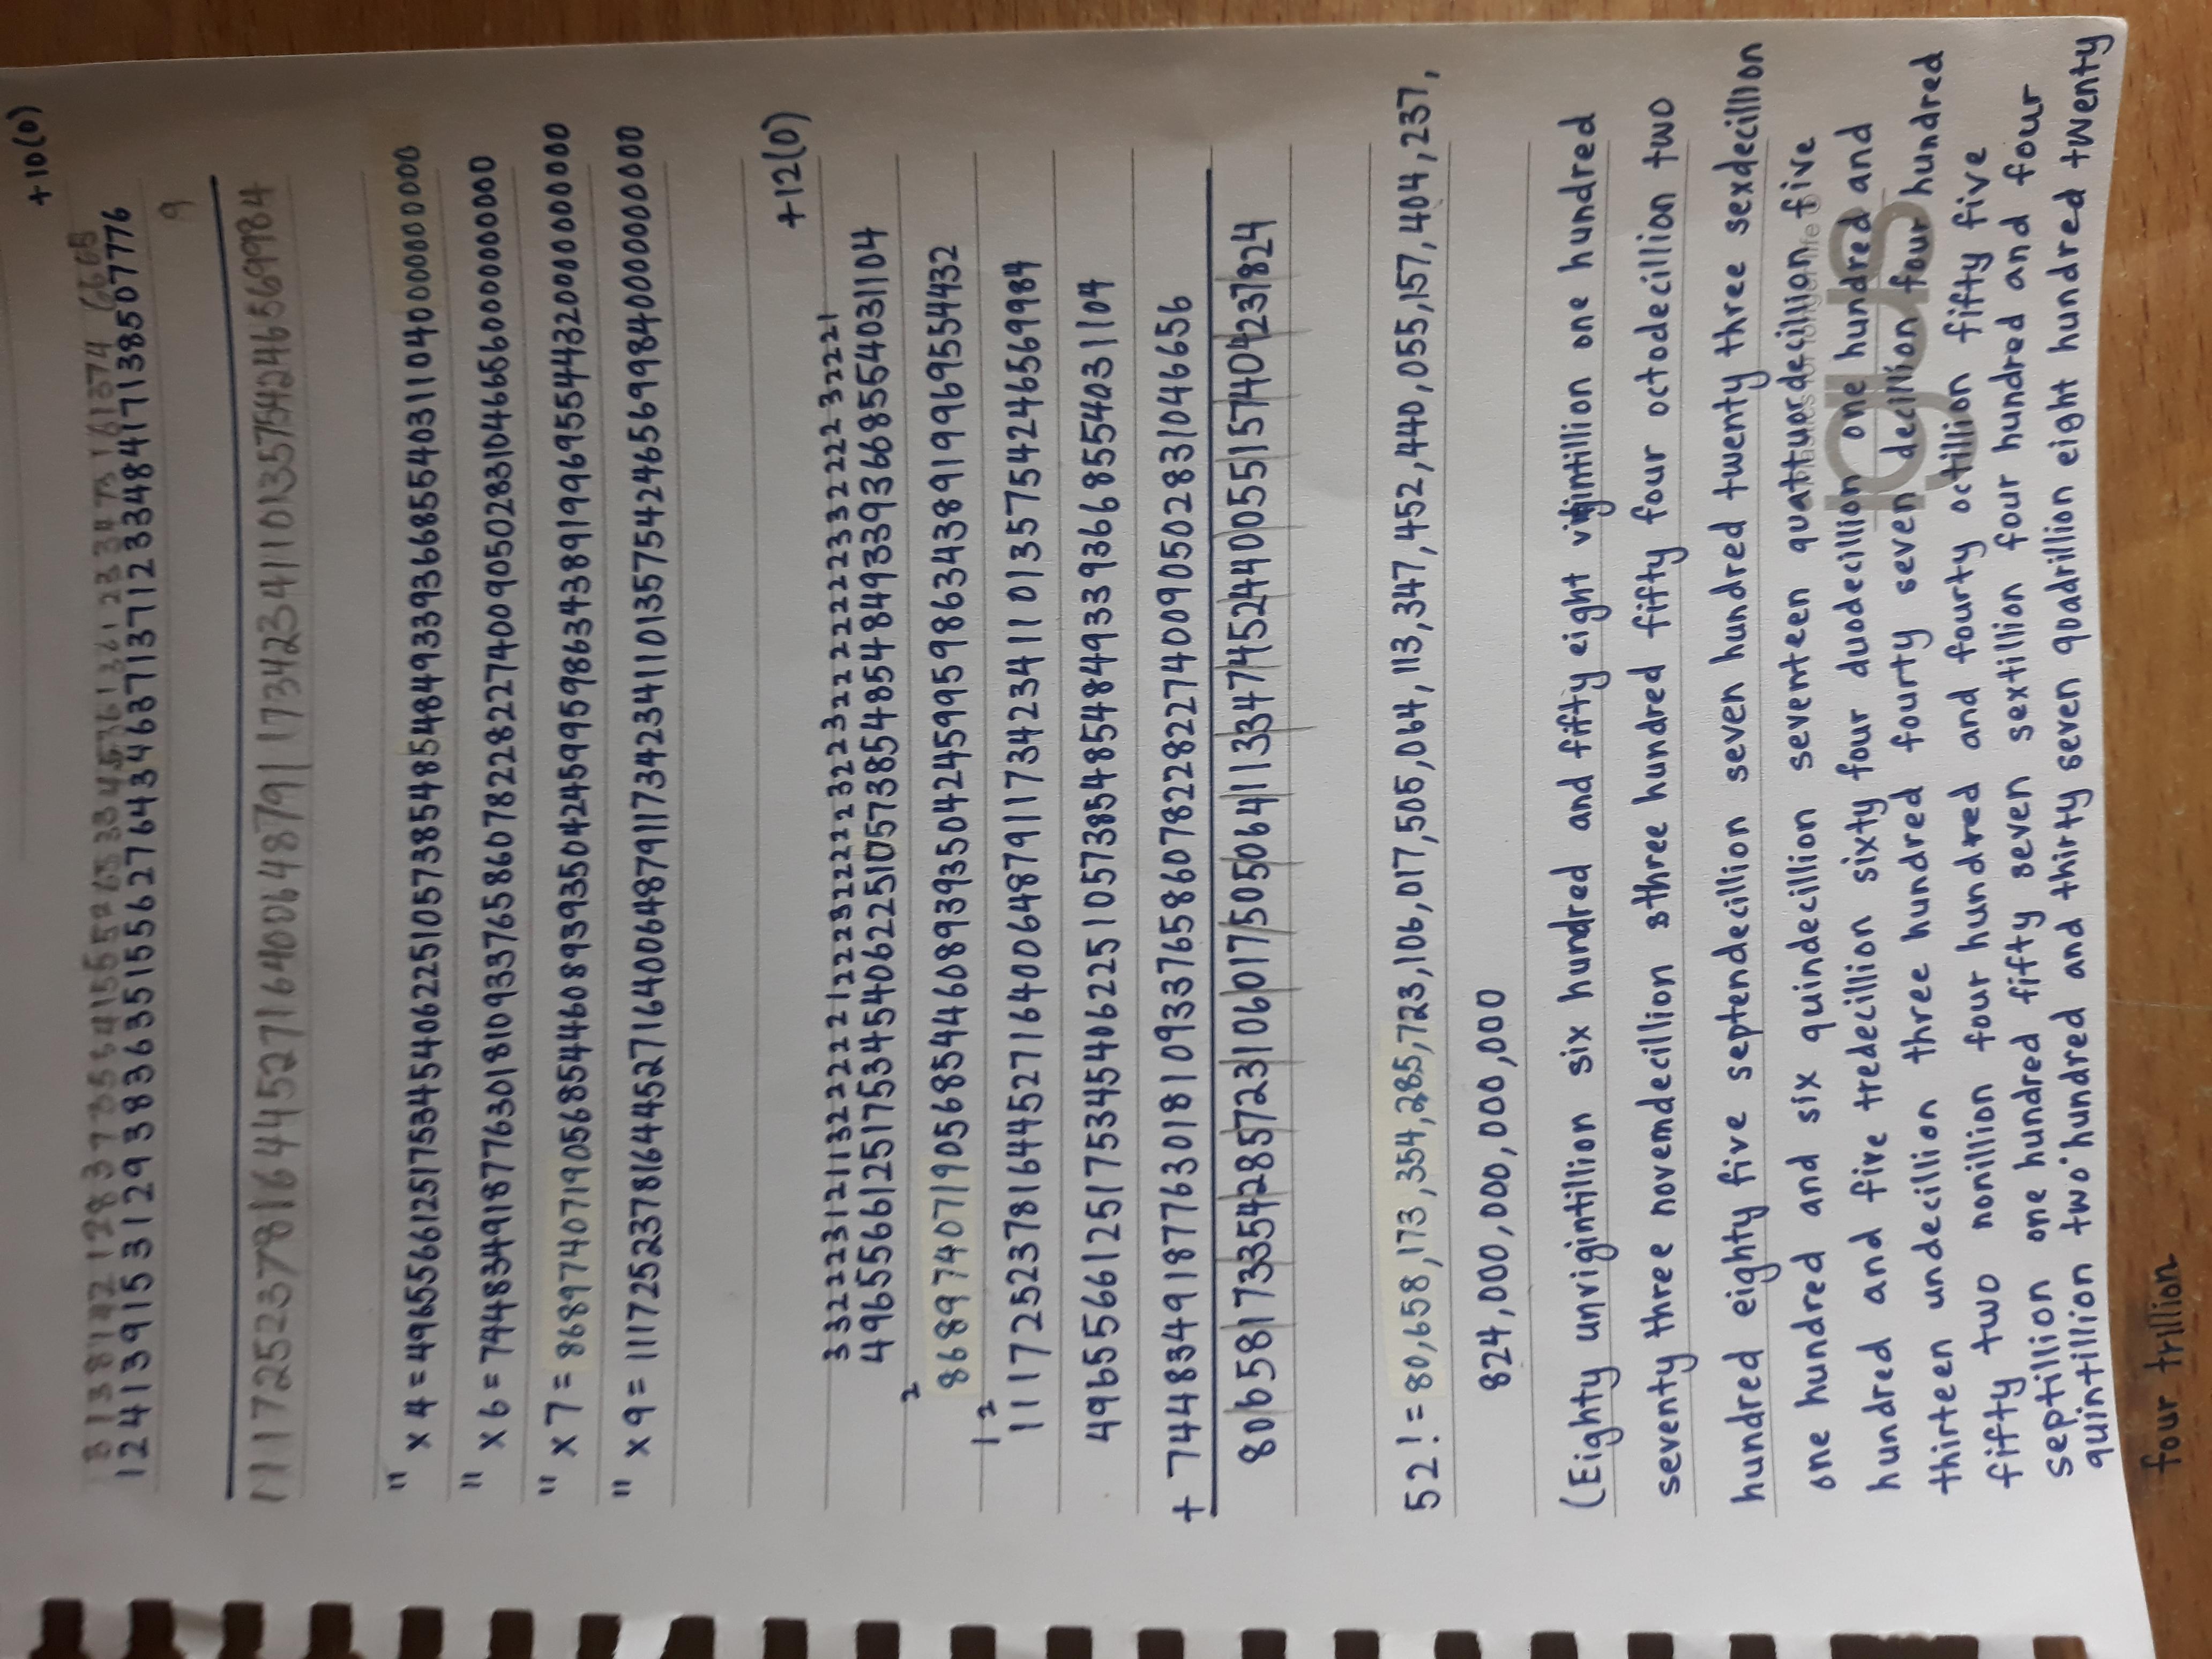 +10(0)
12413915312938363515562764346371371233484171385077776
9
11172523781644527164006487911734234110135754246569984
" x 4 = 49655661251753454062251057385485484933936685540311040000000000
" x 6 = 74483491877630181093376586078228227400905028310466560000000000
" x 7 = 86897407190568544608939350424599598634389199695544320000000000
" x 9 = 111725237816445271640064879117342341101357542465699840000000000
+12(0)
4965566125175345406225105738548548493393668554031104
2
8689740719056854460893935042459959863438919969554432
1 2
11172523781644527164006487911734234110135754246569984
4965566125175345406225105738548548493393668554031104
+ 7448349187763018109337658607822822740090502831046656
80658173354285723106017505064113347452440055157404237824
52! = 80,658,173,354,285,723,106,017,505,064,113,347,452,440,055,157,404,237,
824,000,000,000,000
(Eighty unvigintillion six hundred and fifty eight vigintillion one hundred
seventy three novemdecillion three hundred fifty four octodecillion two
hundred eighty five septendecillion seven hundred twenty three sexdecillion
one hundred and six quindecillion seventeen quattuordecillion five
hundred and five tredecillion sixty four duodecillion one hundred and
thirteen undecillion three hundred fourty seven decillion four hundred
fifty two nonillion four hundred and fourty octillion fifty five
septillion one hundred fifty seven sextillion four hundred and four
quintillion two hundred and thirty seven quadrillion eight hundred twenty
four trillion